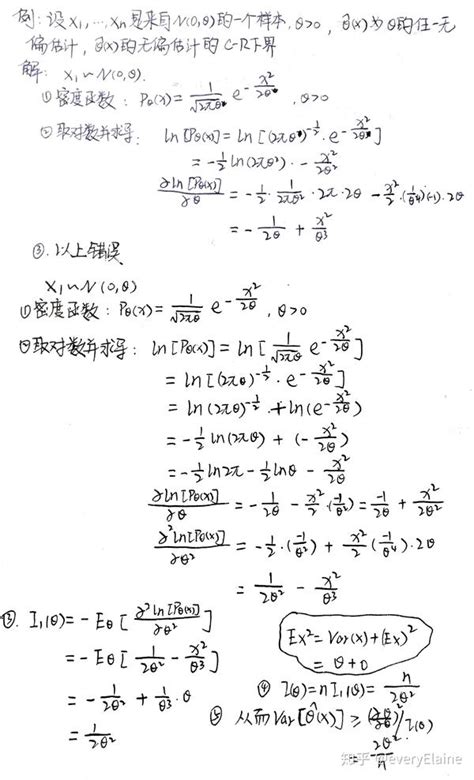 例: 设X1,…,Xn是来自N(0,θ)的一个样本, θ>0, θ̂(x)为θ的任一无
偏估计, θ̂(x)的无偏估计的C-R下界
解: X1~N(0,θ).
①密度函数: Pθ(x)= 1/√(2πθ²) e^(-x²/2θ²), θ>0
②取对数并求导: ln[Pθ(x)] = ln[(2πθ²)^(-1/2) · e^(-x²/2θ²)]
= -1/2 ln(2πθ²) - x²/2θ²
∂ln[Pθ(x)]/∂θ = -1/2 · 1/2πθ² · 2π · 2θ - x²/2 · (1/θ⁴)(-1) · 2θ
= -1/2θ + x²/θ³
③. 以上错误
X1~N(0,θ)
①密度函数: Pθ(x)= 1/√(2πθ) e^(-x²/2θ), θ>0
②取对数并求导: ln[Pθ(x)] = ln[1/√(2πθ) e^(-x²/2θ)]
= ln[(2πθ)^(-1/2) · e^(-x²/2θ)]
= ln(2πθ)^(-1/2) + ln(e^(-x²/2θ))
= -1/2 ln(2πθ) + (-x²/2θ)
= -1/2 ln2π - 1/2 lnθ - x²/2θ
∂ln[Pθ(x)]/∂θ = -1/2θ - x²/2 · (-1/θ²) = -1/2θ + x²/2θ²
∂²ln[Pθ(x)]/∂θ² = -1/2 · (-1/θ²) + x²/2 (-1/θ⁴) · 2θ
= 1/2θ² - x²/θ³
③. I1(θ) = -Eθ[∂²ln[Pθ(x)]/∂θ²]
= -Eθ[1/2θ² - x²/θ³]
= -1/2θ² + 1/θ³ · θ
= 1/2θ²
Ex² = Var(x) + (Ex)²
= θ + 0
④ I(θ) = nI1(θ) = n/2θ²
⑤ 从而Var[θ̂(x)] ≥ (∂θ/∂θ)²/I(θ)
= 2θ²/n
知乎 @everyElaine